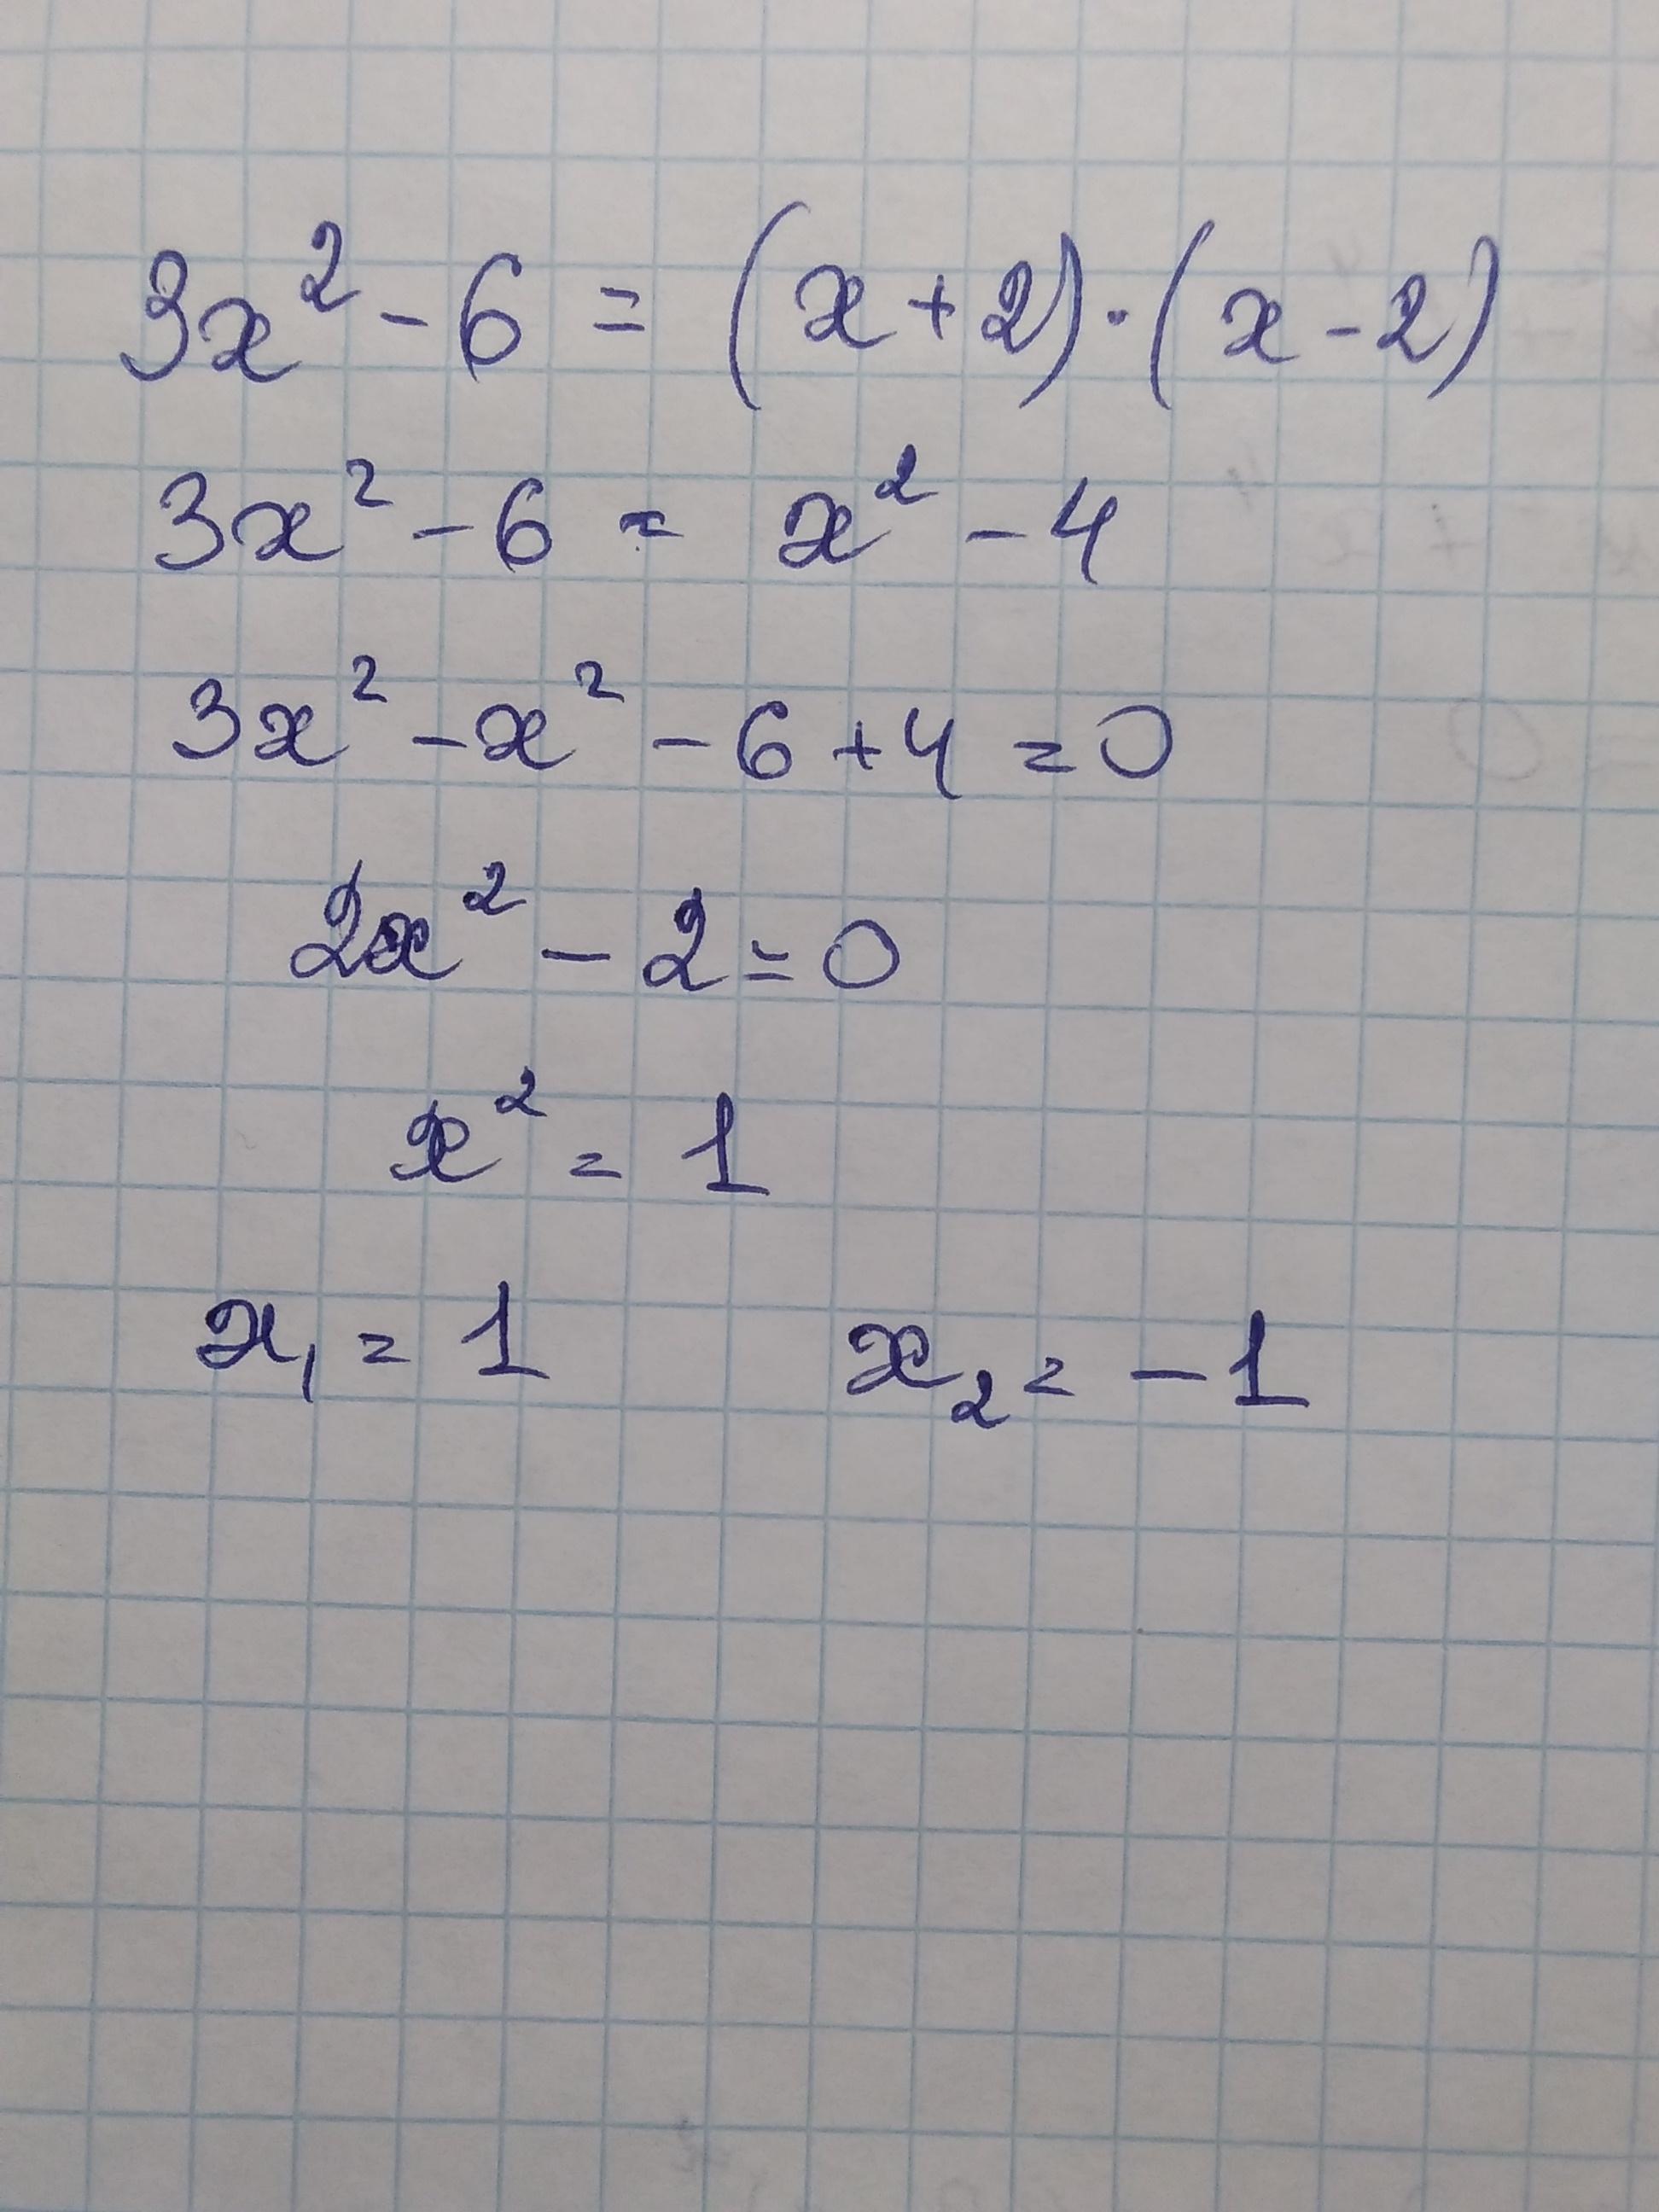 3x² - 6 = (x + 2) · (x - 2)
3x² - 6 = x² - 4
3x² - x² - 6 + 4 = 0
2x² - 2 = 0
x² = 1
x₁ = 1 x₂ = -1